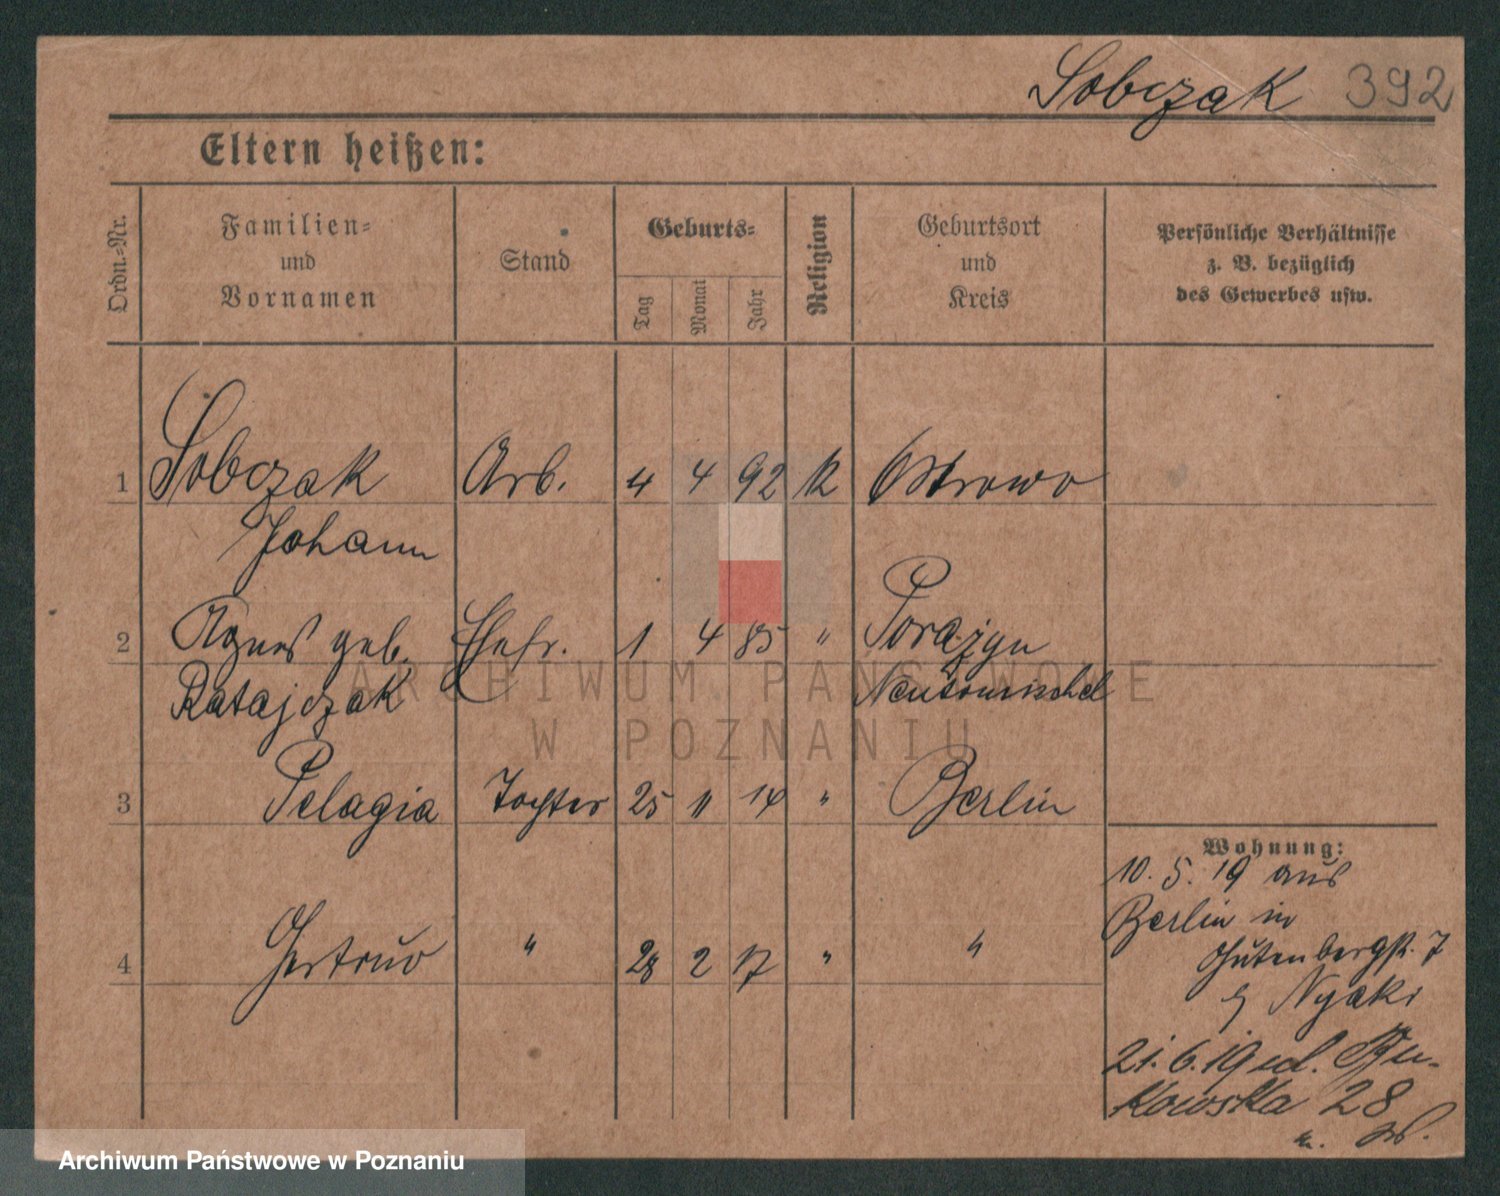 Sobczak 392
Eltern heißen:
Ordn.-Nr.
Familien-
und
Vornamen
Stand
Geburts-
Tag
Monat
Jahr
Religion
Geburtsort
und
Kreis
Persönliche Verhältnisse
z. B. bezüglich
des Gewerbes usw.
1 Sobczak Arb. 4 4 92 K Ostrowo
Johann
2 Agnes geb. Ehefr. 1 4 85 " Porazyn
Ratajczak Neutomischel
3 Pelagia Tochter 25 11 14 " Berlin
4 Gertrud " 28 2 17 " "
Wohnung:
10. 5. 19 aus
Berlin in
Gutenbergstr. 7
Nyaki
21. 6. 19 Bu-
kowska 28
ARCHIWUM PAŃSTWOWE
W POZNANIU
Archiwum Państwowe w Poznaniu